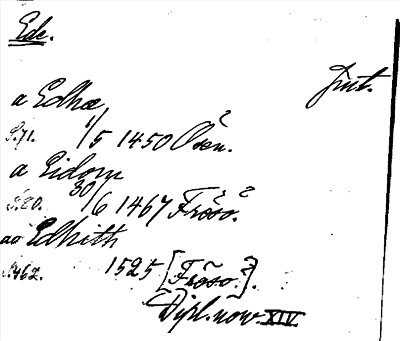 Ede.
Jmt.
a Edhæ,
S.71. 1/5 1450 Osen.
a Eidom
S.20. 30/6 1467 Frösö.
ao Edhith
S.462. 1525 [Frösö?].
Dipl. norv. XIV.